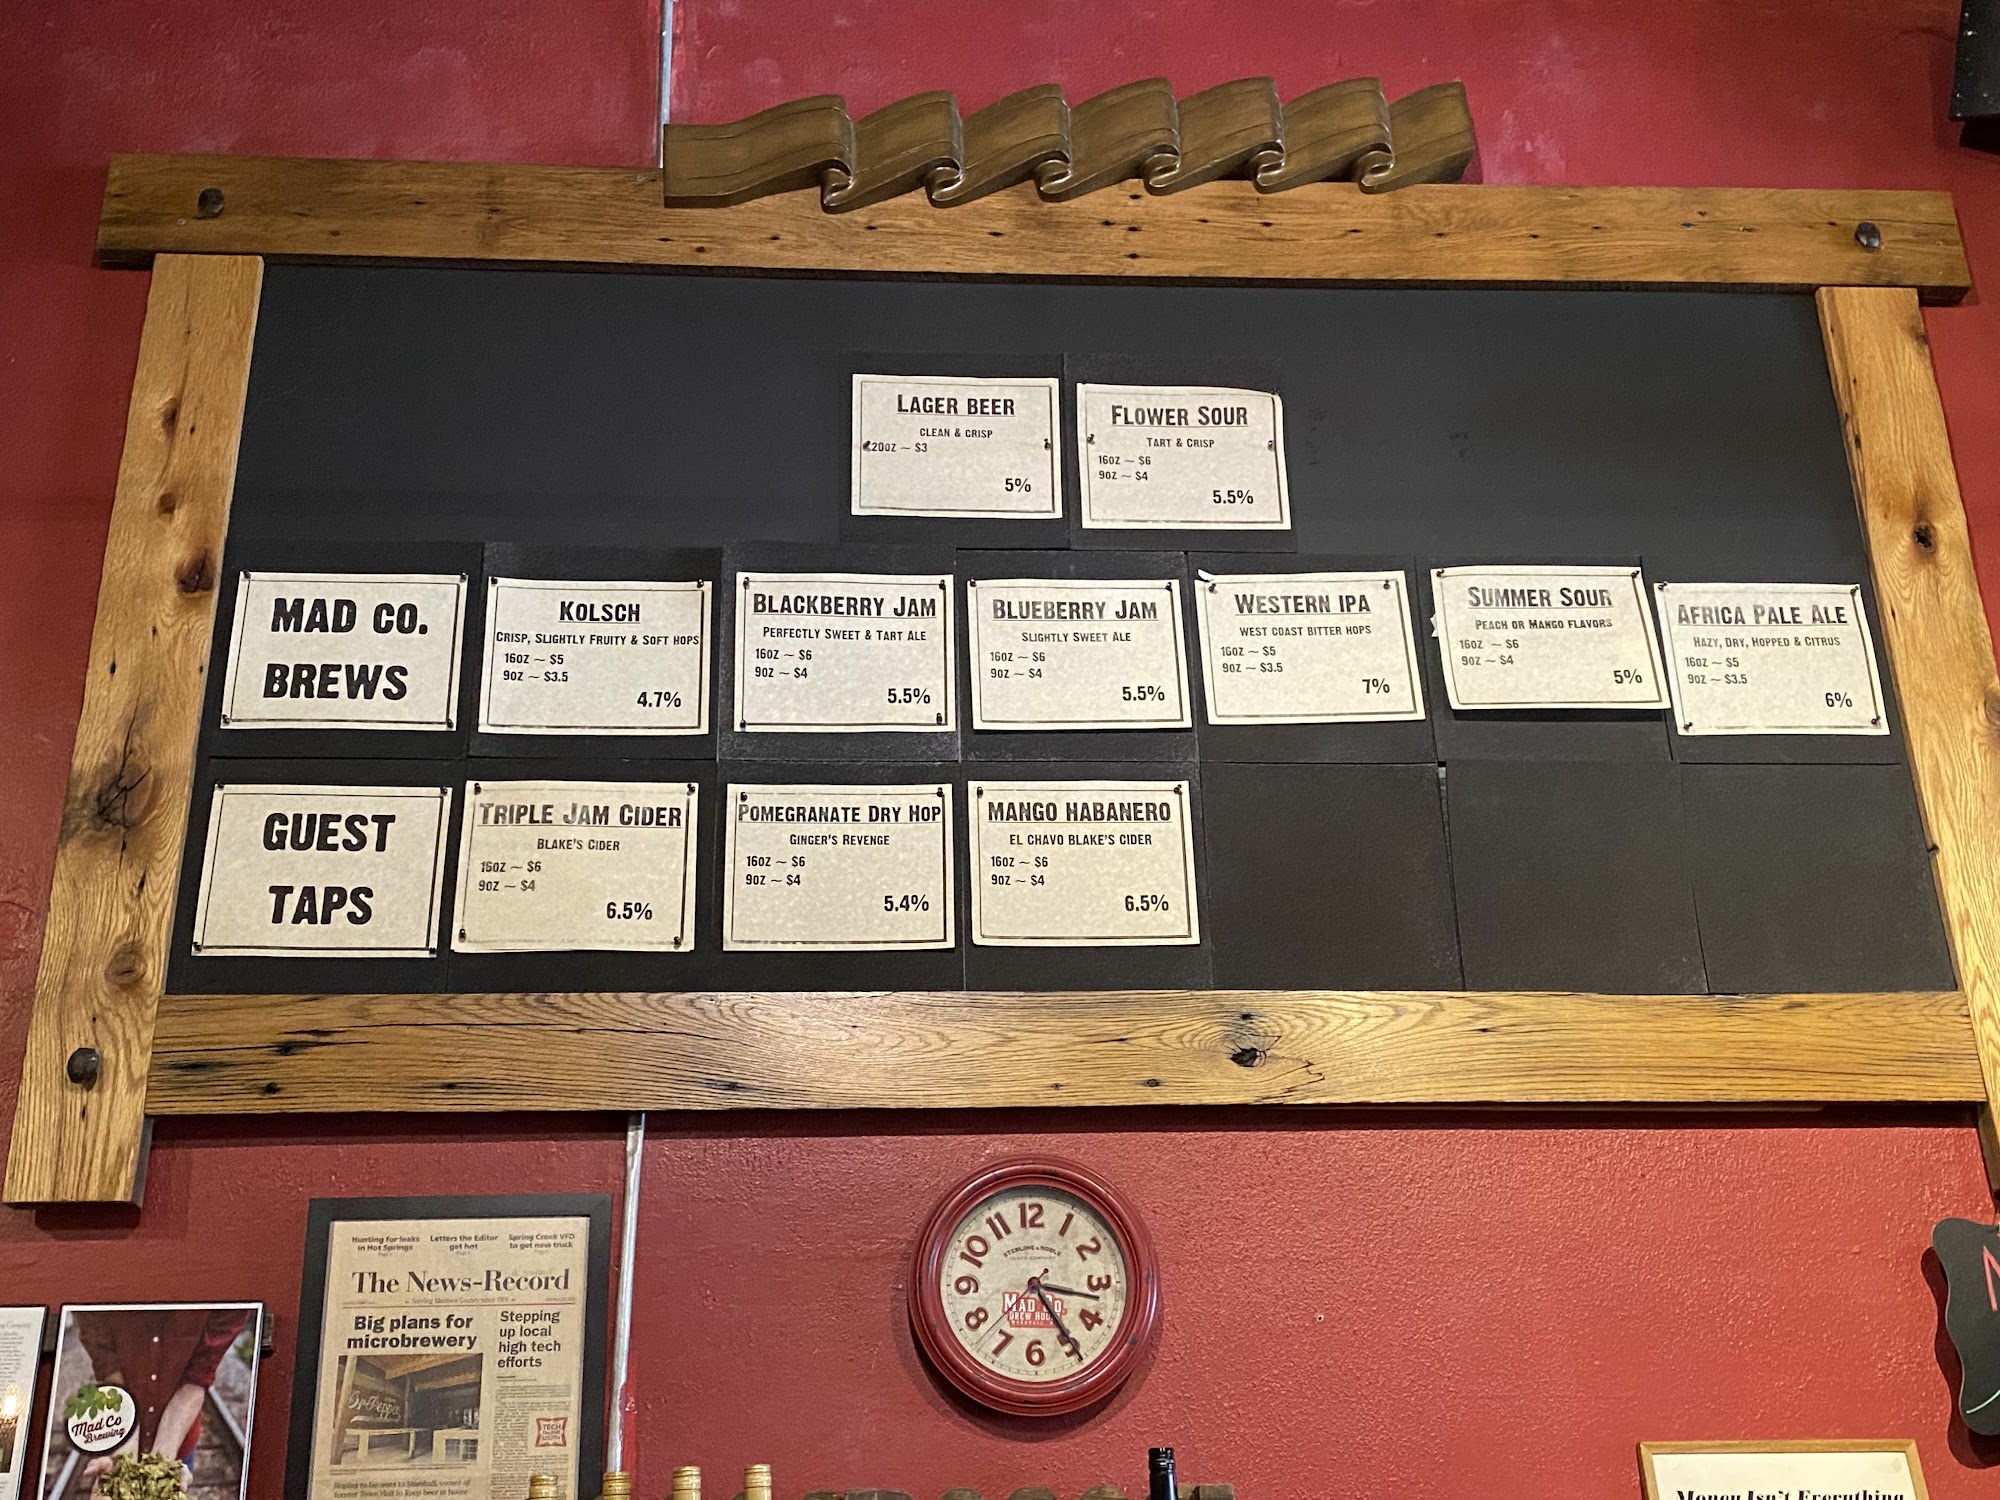 LAGER BEER
CLEAN & CRISP
20OZ ~ $3
5%
FLOWER SOUR
TART & CRISP
16OZ ~ $6
9OZ ~ $4
5.5%
MAD CO.
BREWS
KOLSCH
CRISP, SLIGHTLY FRUITY & SOFT HOPS
16OZ ~ $5
9OZ ~ $3.5
4.7%
BLACKBERRY JAM
PERFECTLY SWEET & TART ALE
16OZ ~ $6
9OZ ~ $4
5.5%
BLUEBERRY JAM
SLIGHTLY SWEET ALE
16OZ ~ $6
9OZ ~ $4
5.5%
WESTERN IPA
WEST COAST BITTER HOPS
16OZ ~ $5
9OZ ~ $3.5
7%
SUMMER SOUR
PEACH OR MANGO FLAVORS
16OZ ~ $6
9OZ ~ $4
5%
AFRICA PALE ALE
HAZY, DRY, HOPPED & CITRUS
16OZ ~ $5
9OZ ~ $3.5
6%
GUEST
TAPS
TRIPLE JAM CIDER
BLAKE'S CIDER
16OZ ~ $6
9OZ ~ $4
6.5%
POMEGRANATE DRY HOP
GINGER'S REVENGE
16OZ ~ $6
9OZ ~ $4
5.4%
MANGO HABANERO
EL CHAVO BLAKE'S CIDER
16OZ ~ $6
9OZ ~ $4
6.5%
12
1
2
3
4
5
6
7
8
9
10
11
STERLING & NOBLE
MAD CO.
BREW HOUSE
Hunting for leaks
in Hot Springs
Letters the Editor
get hot
Spring Creek VFD
to get new truck
The News-Record
Serving Madison County since 1901
Big plans for
microbrewery
Stepping
up local
high tech
efforts
Dr Pepper
TECH
Mad Co
Brewing
Money Isn't Everything